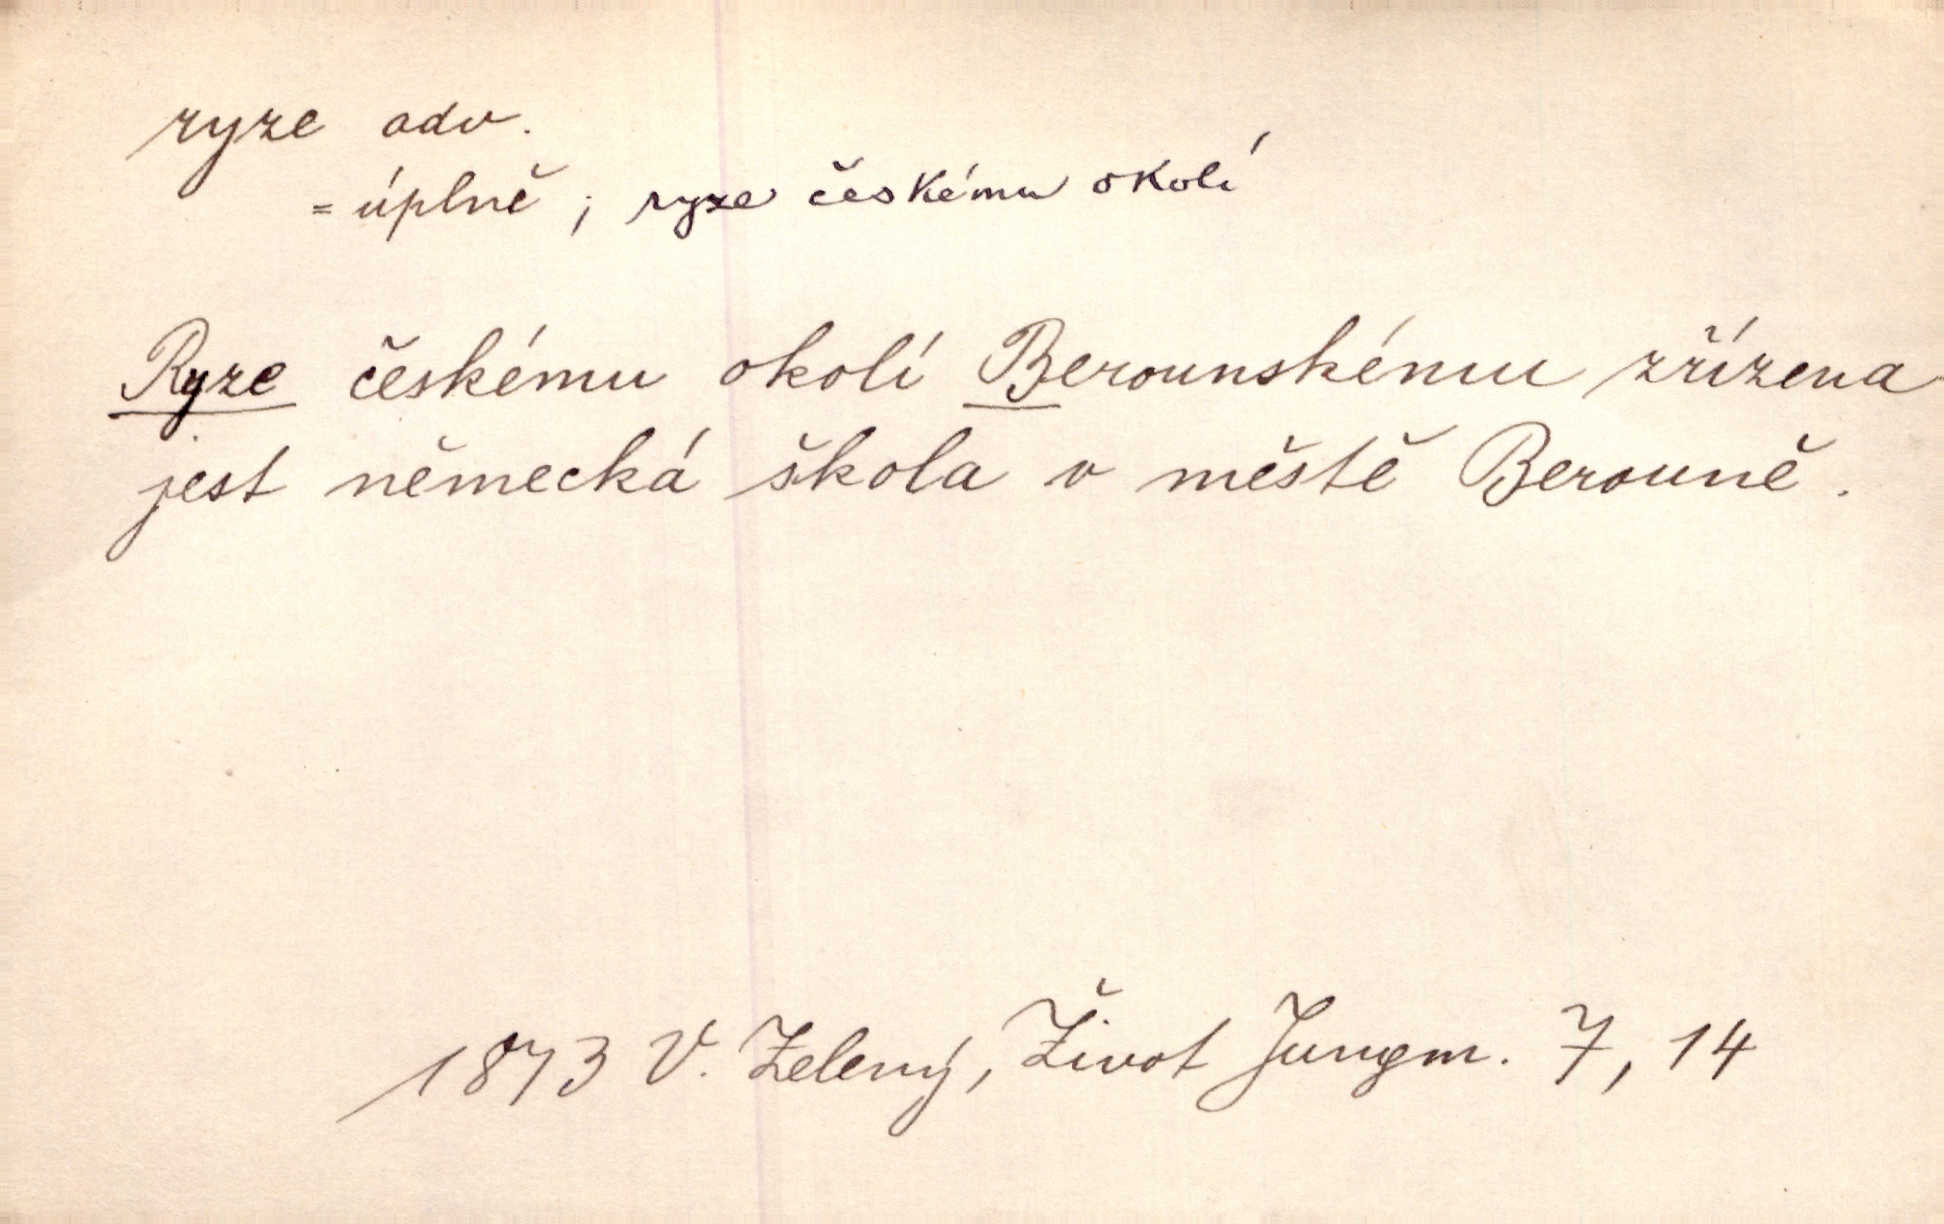 ryze adv.
= úplně ; ryze českému okolí
Ryze českému okolí Berounskému zřízena
jest německá škola v městě Berouně.
1873 V. Zelený, Život Jungm. 7, 14